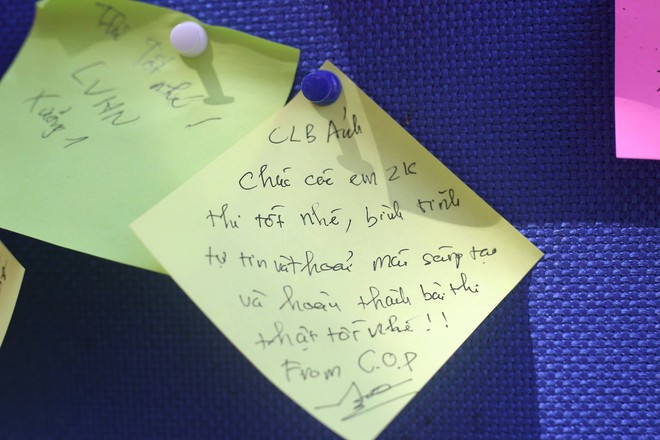 Thi tốt nhé!
CVHN
Xưởng 1
CLB Ảnh
Chúc các em 2K
thi tốt nhé, bình tĩnh
tự tin và thoải mái sáng tạo
và hoàn thành bài thi
thật tốt nhé!!
From C.O.P